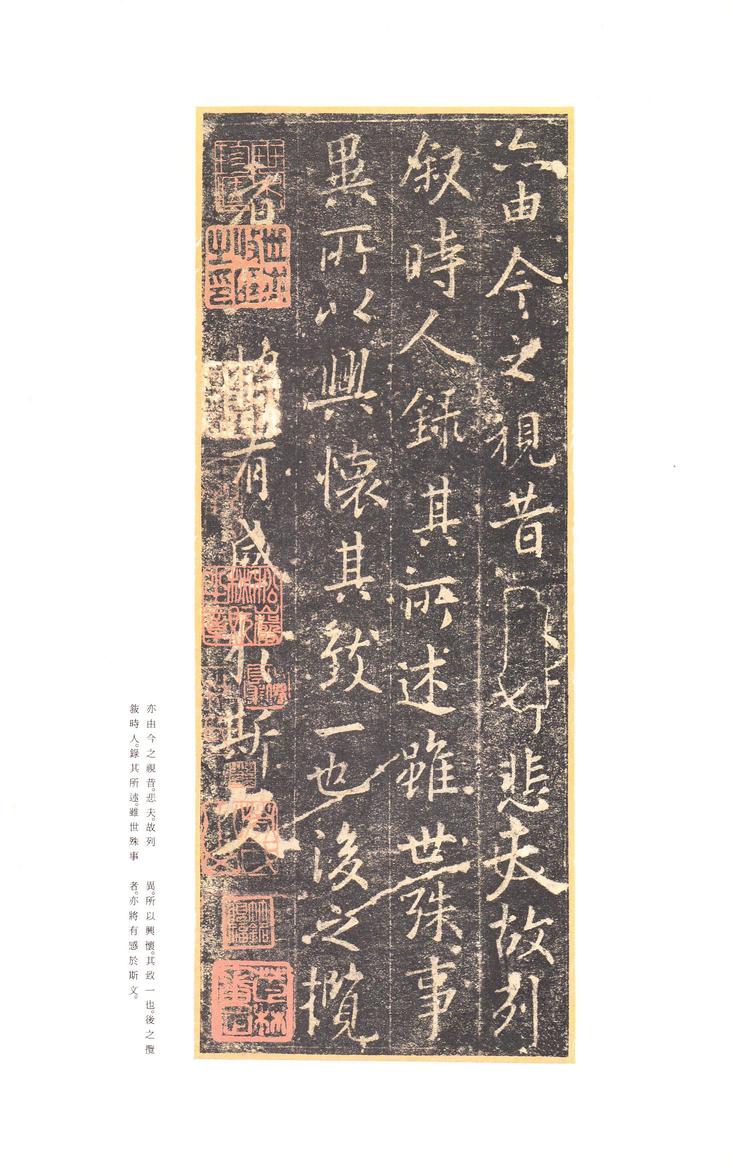 亦由今之視昔悲夫故列
叙時人録其所述雖世殊事
異所以興懷其致一也後之攬
者亦將有感於斯文
亦由今之視昔。悲夫。故列
敍時人。錄其所述。雖世殊事
異。所以興懷。其致一也。後之攬
者。亦將有感於斯文。